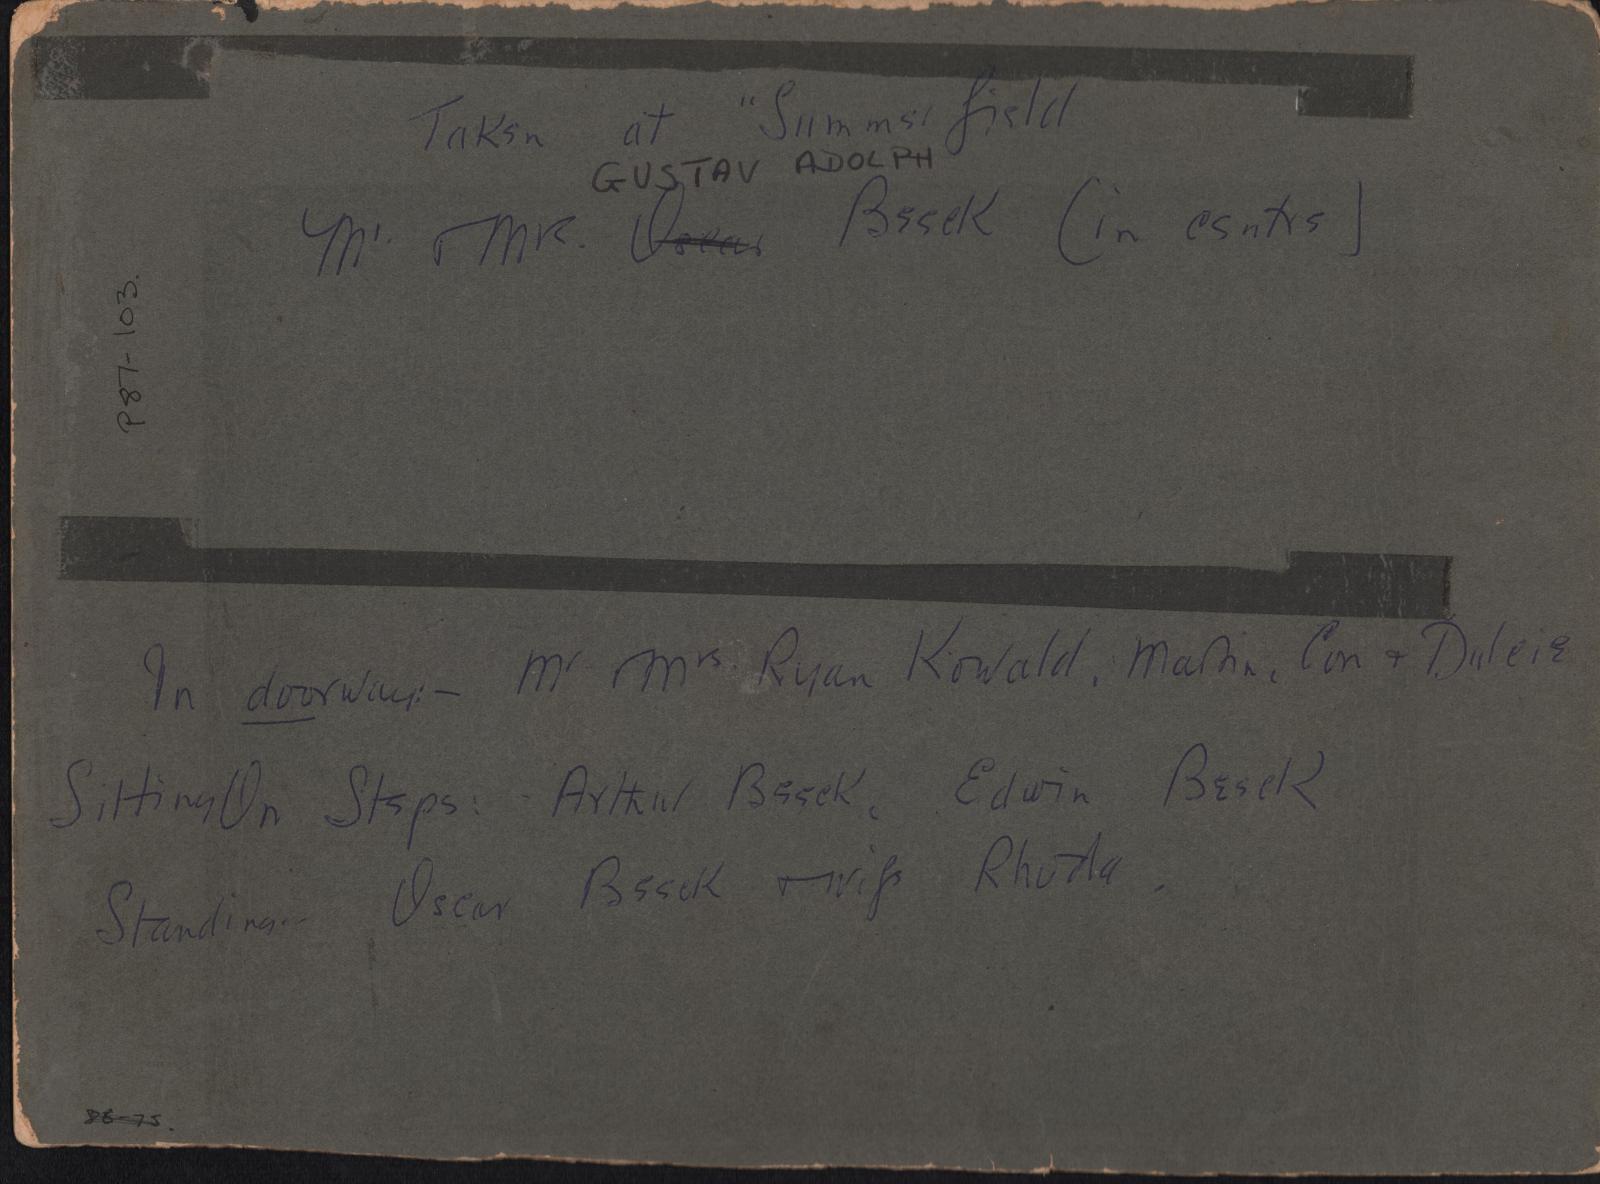 Taken at "Summerfield
GUSTAV ADOLPH
Mr. + Mrs. Oscar Beseck (in centre)
P87-103.
In doorway:- Mr + Mrs. Ryan Kowald, Martin, Con + Dulcie
Sitting On Steps: - Arthur Beseck, Edwin Beseck
Standing:- Oscar Beseck + wife Rhoda.
86-75.